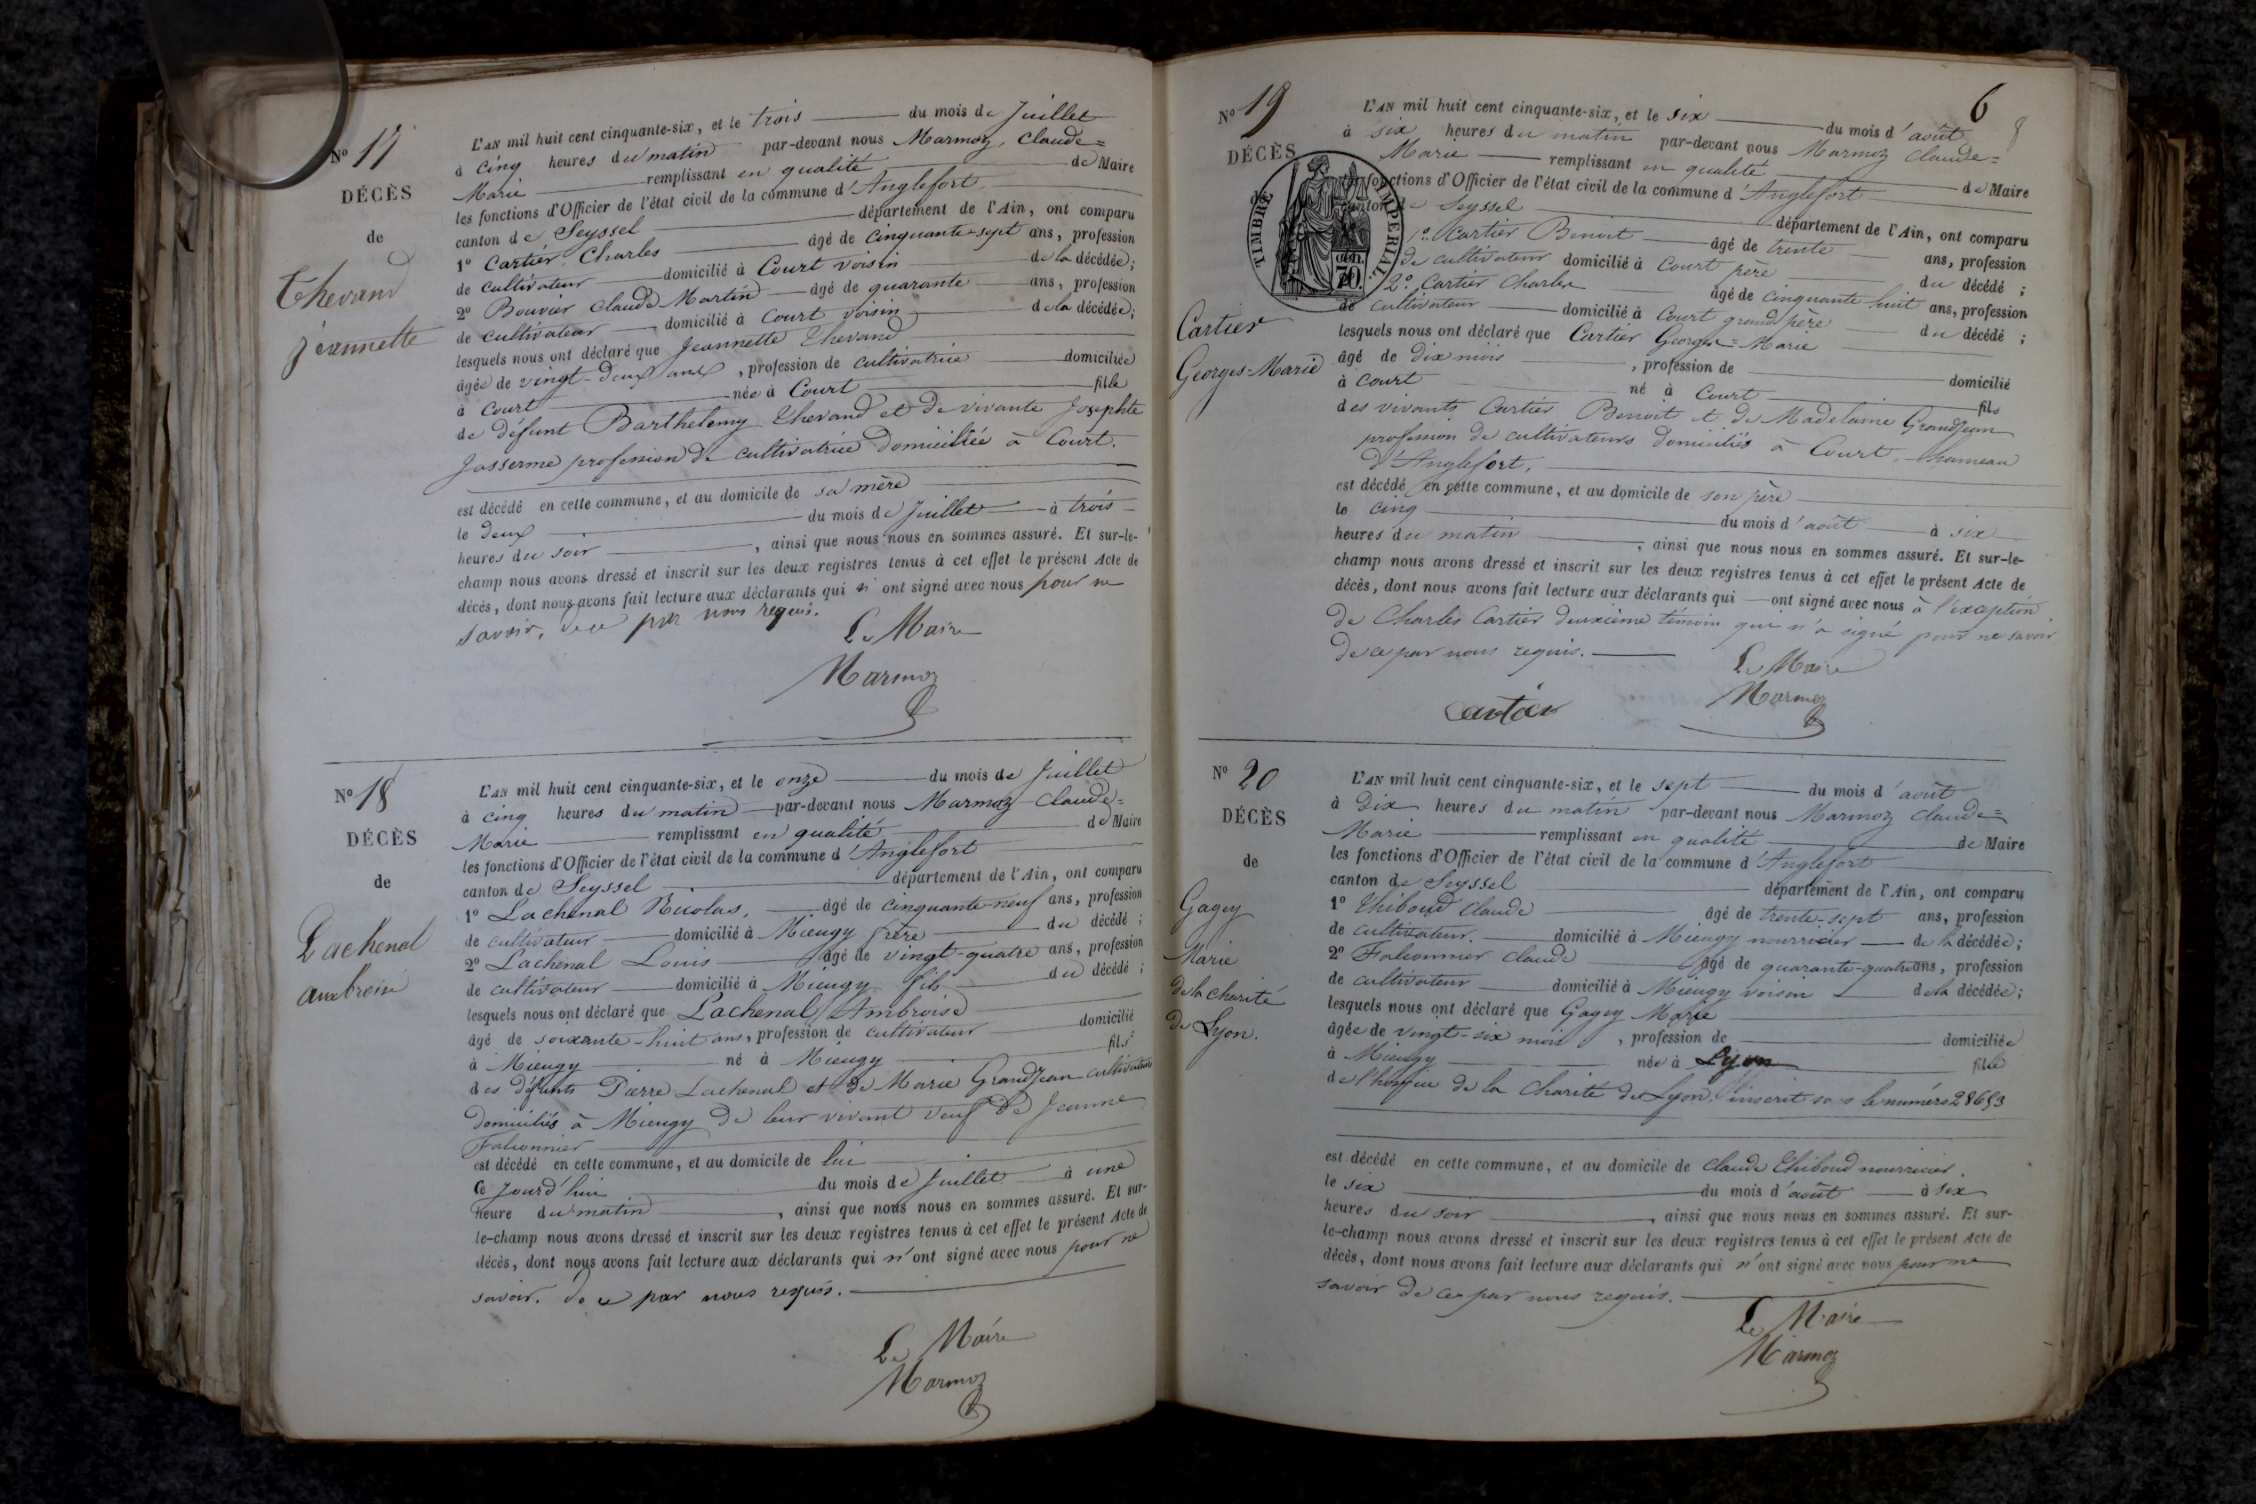 N° 17
DÉCÈS
de
Thevand
Jeannette
L'AN mil huit cent cinquante-six, et le trois du mois de Juillet
à cinq heures du matin par-devant nous Marmoz, Claude=
Marie remplissant en qualité de Maire
les fonctions d'Officier de l'état civil de la commune d'Anglefort
canton de Seyssel département de l'Ain, ont comparu
1° Cartier Charles âgé de cinquante-sept ans, profession
de cultivateur domicilié à Court voisin de la décédée;
2° Bouvier Claude Martin âgé de quarante ans, profession
de cultivateur domicilié à Court voisin de la décédée;
lesquels nous ont déclaré que Jeannette Thevand
âgée de vingt-deux ans, profession de cultivatrice domiciliée
à Court née à Court fille
de défunt Barthelemy Thevand et de vivante Josephte
Josserme profession de cultivatrice domiciliée à Court.
est décédé en cette commune, et au domicile de sa mère
le deux du mois de Juillet à trois
heures du soir, ainsi que nous nous en sommes assuré. Et sur-le-
champ nous avons dressé et inscrit sur les deux registres tenus à cet effet le présent Acte de
décès, dont nous avons fait lecture aux déclarants qui n'ont signé avec nous pour ne
savoir, de ce par nous requis.
Le Maire
Marmoz
N° 18
DÉCÈS
de
Lachenal
ambroise
L'AN mil huit cent cinquante-six, et le onze du mois de Juillet
à cinq heures du matin par-devant nous Marmoz Claude=
Marie remplissant en qualité de Maire
les fonctions d'Officier de l'état civil de la commune d'Anglefort
canton de Seyssel département de l'Ain, ont comparu
1° Lachenal Nicolas, âgé de cinquante-neuf ans, profession
de cultivateur domicilié à Mieugy frère du décédé;
2° Lachenal Louis âgé de vingt-quatre ans, profession
de cultivateur domicilié à Mieugy fils du décédé;
lesquels nous ont déclaré que Lachenal Ambroise
âgé de soixante-huit ans, profession de cultivateur domicilié
à Mieugy né à Mieugy fils
des défunts Pierre Lachenal et de Marie GrandJean cultivateurs
domiciliés à Mieugy de leur vivant veuf de Jeanne
Falconnier
est décédé en cette commune, et au domicile de lui
ce jourd'hui du mois de Juillet à une
heure du matin, ainsi que nous nous en sommes assuré. Et sur-
le-champ nous avons dressé et inscrit sur les deux registres tenus à cet effet le présent Acte de
décès, dont nous avons fait lecture aux déclarants qui n'ont signé avec nous pour ne
savoir. de ce par nous requis.
Le Maire
Marmoz
6
N° 19
DÉCÈS
de
TIMBRE IMPERIAL
70.
Cartier
Georges-Marie
L'AN mil huit cent cinquante-six, et le six du mois d'août
à six heures du matin par-devant nous Marmoz Claude=
Marie remplissant en qualité de Maire
les fonctions d'Officier de l'état civil de la commune d'Anglefort
canton de Seyssel département de l'Ain, ont comparu
1° Cartier Benoit âgé de trente ans, profession
de cultivateur domicilié à Court père du décédé;
2° Cartier Charles âgé de cinquante huit ans, profession
de cultivateur domicilié à Court grand père du décédé;
lesquels nous ont déclaré que Cartier Georges=Marie
âgé de dix mois, profession de domicilié
à Court né à Court fils
des vivants Cartier Benoit et de Madelaine GrandJean
profession de cultivateurs domiciliés à Court, hameau
d'Anglefort.
est décédé en cette commune, et au domicile de son père
le cinq du mois d'août à six
heures du matin, ainsi que nous nous en sommes assuré. Et sur-le-
champ nous avons dressé et inscrit sur les deux registres tenus à cet effet le présent Acte de
décès, dont nous avons fait lecture aux déclarants qui ont signé avec nous à l'exception
de Charles Cartier deuxième témoin qui n'a signé pour ne savoir
de ce par nous requis.
Le Maire
Cartier Marmoz
N° 20
DÉCÈS
de
Gagey
Marie
de la charité
de Lyon.
L'AN mil huit cent cinquante-six, et le sept du mois d'août
à dix heures du matin par-devant nous Marmoz Claude=
Marie remplissant en qualité de Maire
les fonctions d'Officier de l'état civil de la commune d'Anglefort
canton de Seyssel département de l'Ain, ont comparu
1° Thiboud Claude âgé de trente-sept ans, profession
de cultivateur. domicilié à Mieugy nourricier de la décédée;
2° Falconnier Claude âgé de quarante-quatre ans, profession
de cultivateur domicilié à Mieugy voisin de la décédée;
lesquels nous ont déclaré que Gagey Marie
âgée de vingt-six mois, profession de domiciliée
à Mieugy née à Lyon fille
de l'hospice de la Charité de Lyon, inscrit sous le numéro 28653
est décédé en cette commune, et au domicile de Claude Thiboud nourricier.
le six du mois d'août à six
heures du soir, ainsi que nous nous en sommes assuré. Et sur-
le-champ nous avons dressé et inscrit sur les deux registres tenus à cet effet le présent Acte de
décès, dont nous avons fait lecture aux déclarants qui n'ont signé avec nous pour ne
savoir de ce par nous requis.
Le Maire
Marmoz